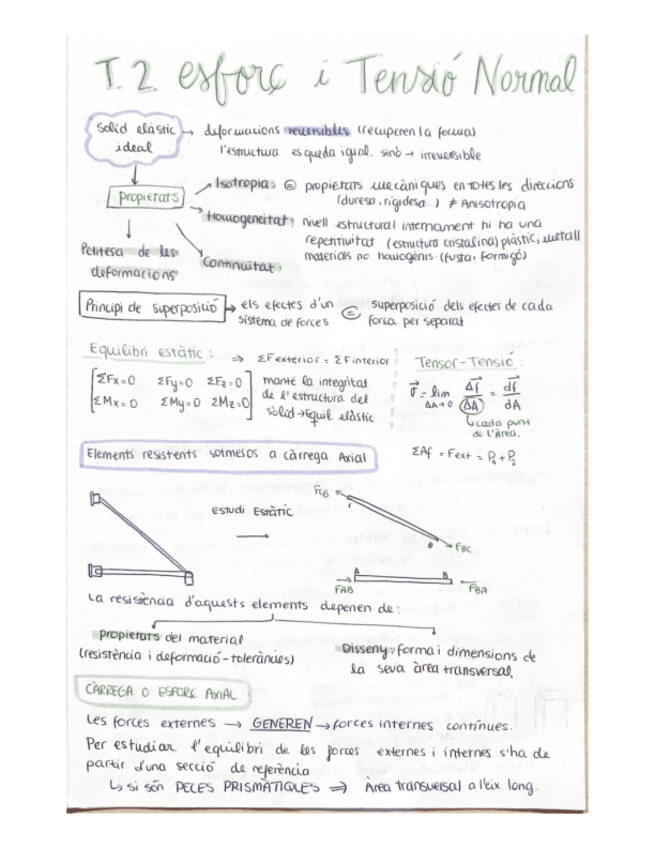 T.2. esforç i Tensió Normal
Sòlid elàstic ideal → deformacions reversibles (recuperen la forma)
l'estructura es queda igual. sinó → irreversible
Propietats
Isotropia: = propietats mecàniques en TOTES les direccions
(duresa, rigidesa...) ≠ Anisotropia
Homogeneitat: nivell estructural internament hi ha una
repetitivitat (estructura cristal·lina) plàstic, metall
materials no homogènis (fusta, formigó)
Petitesa de les
deformacions
Continuïtat:
Principi de superposició → els efectes d'un = superposició dels efectes de cada
sistema de forces força per separat
Equilibri estàtic: ⇒ ΣFexterior = ΣFinterior
ΣFx=0 ΣFy=0 ΣFz=0
ΣMx=0 ΣMy=0 ΣMz=0
manté la integritat
de l'estructura del
sòlid → Equil elàstic
Tensor-Tensió:
σ = lim Δf/ΔA = df/dA
ΔA→0
↳ cada punt
de l'Àrea.
ΣΔf = Fext = P1 + P2
Elements resistents sotmesos a càrrega Axial
Estudi Estàtic
→
FCB
C
B
FBC
A B
FAB FBA
La resistència d'aquests elements depenen de:
propietats del material
(resistència i deformació-toleràncies)
Disseny: forma i dimensions de
la seva àrea transversal.
CÀRREGA O ESFORÇ AXIAL
Les forces externes → GENEREN → forces internes contínues.
Per estudiar l'equilibri de les forces externes i internes s'ha de
partir d'una secció de referència
↳ si són PECES PRISMÀTIQUES ⇒ Àrea transversal a l'eix long.